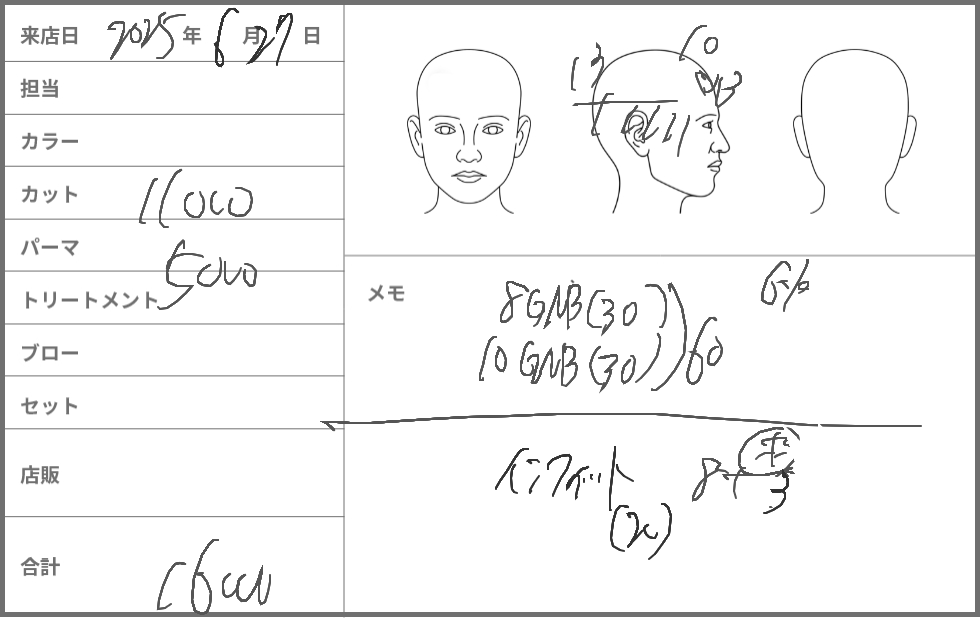 来店日 2025 年 6 月 27 日
担当
カラー
カット 11000
パーマ
トリートメント 5000
ブロー
セット
店販
合計 16000
10
13
メモ
8GNB(30)
10GNB(30)
60
6%
インフィット
(20)
8
3